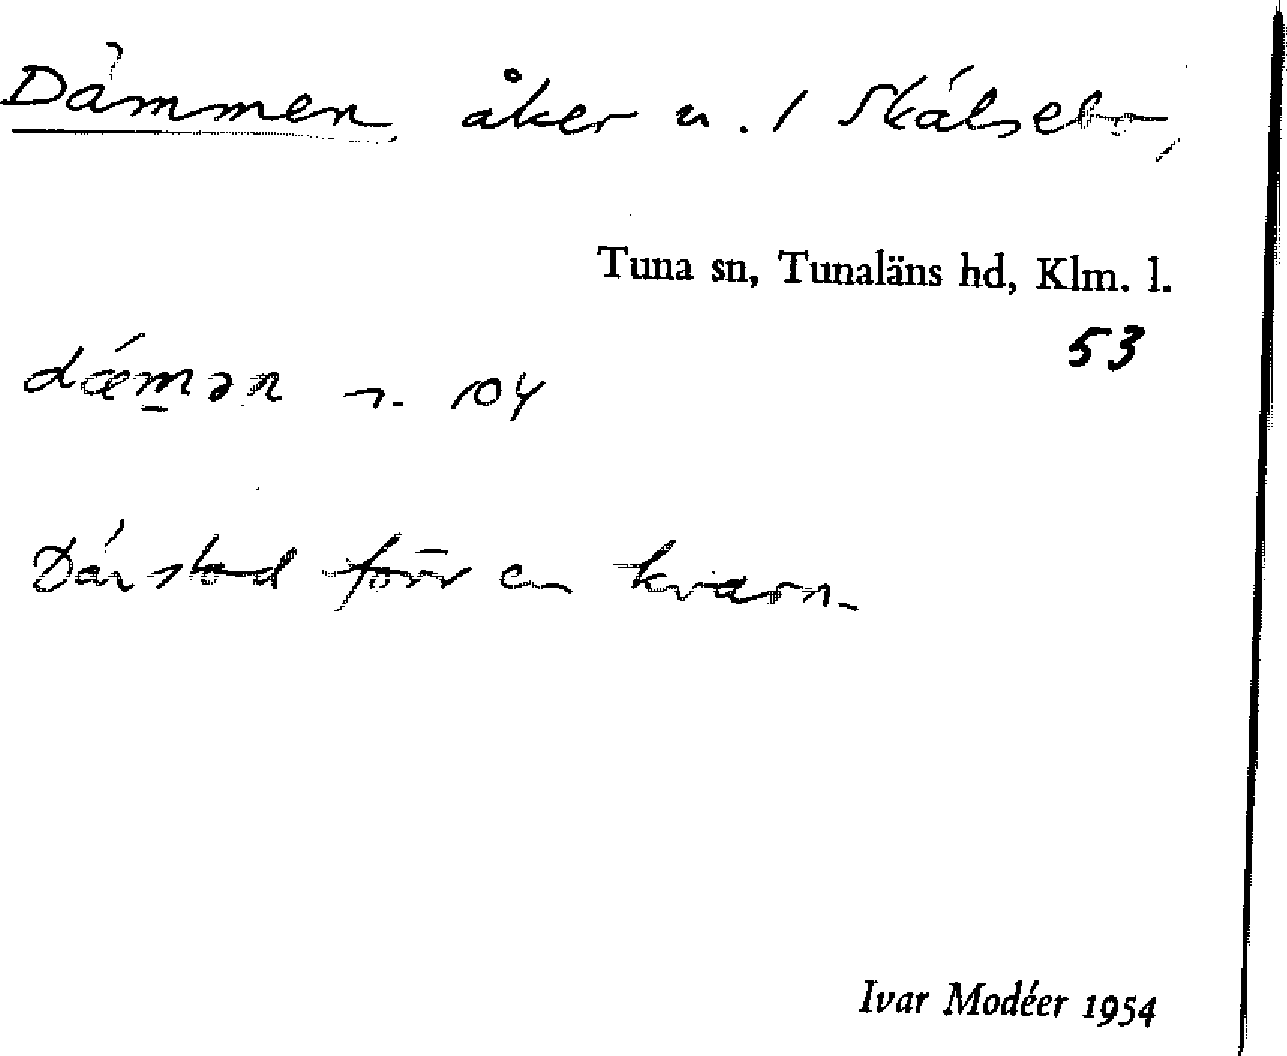 Dämmen, åker u. 1 Skälsebo,
Tuna sn, Tunaläns hd, Klm. l.
53
dǽm̲ən n. 104
Där stod förr en kvarn.
Ivar Modéer 1954